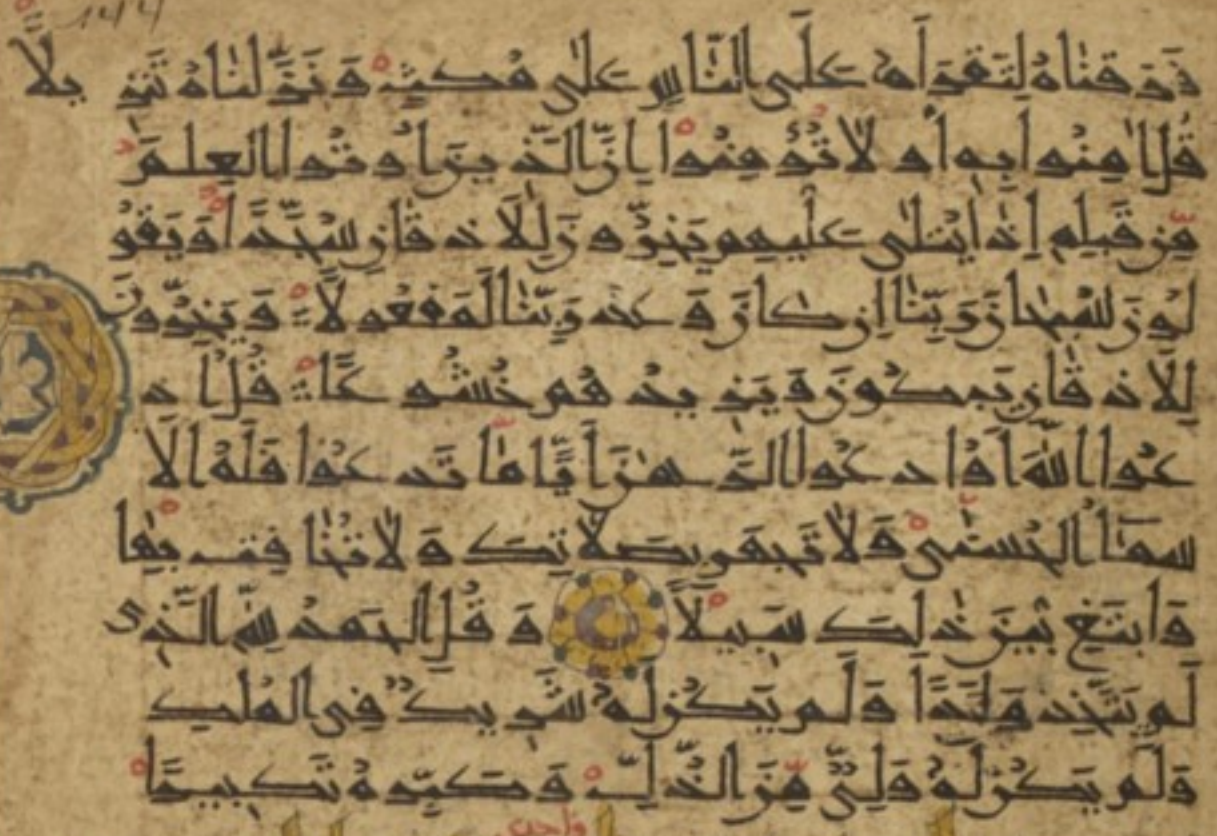 فَرَقْنَاهُ لِتَقْرَأَهُ عَلَى النَّاسِ عَلَىٰ مُكْثٍ وَنَزَّلْنَاهُ تَنْزِيلًا
قُلْ آمِنُوا بِهِ أَوْ لَا تُؤْمِنُوا إِنَّ الَّذِينَ أُوتُوا الْعِلْمَ
مِنْ قَبْلِهِ إِذَا يُتْلَىٰ عَلَيْهِمْ يَخِرُّونَ لِلْأَذْقَانِ سُجَّدًا وَيَقُو
لُونَ سُبْحَانَ رَبِّنَا إِنْ كَانَ وَعْدُ رَبِّنَا لَمَفْعُولًا وَيَخِرُّونَ
لِلْأَذْقَانِ يَبْكُونَ وَيَزِيدُهُمْ خُشُوعًا قُلِ اد
عُوا اللَّهَ أَوِ ادْعُوا الرَّحْمَٰنَ أَيًّا مَا تَدْعُوا فَلَهُ الْأَ
سْمَاءُ الْحُسْنَىٰ وَلَا تَجْهَرْ بِصَلَاتِكَ وَلَا تُخَافِتْ بِهَا
وَابْتَغِ بَيْنَ ذَٰلِكَ سَبِيلًا وَقُلِ الْحَمْدُ لِلَّهِ الَّذِي
لَمْ يَتَّخِذْ وَلَدًا وَلَمْ يَكُنْ لَهُ شَرِيكٌ فِي الْمُلْكِ
وَلَمْ يَكُنْ لَهُ وَلِيٌّ مِنَ الذُّلِّ وَكَبِّرْهُ تَكْبِيرًا